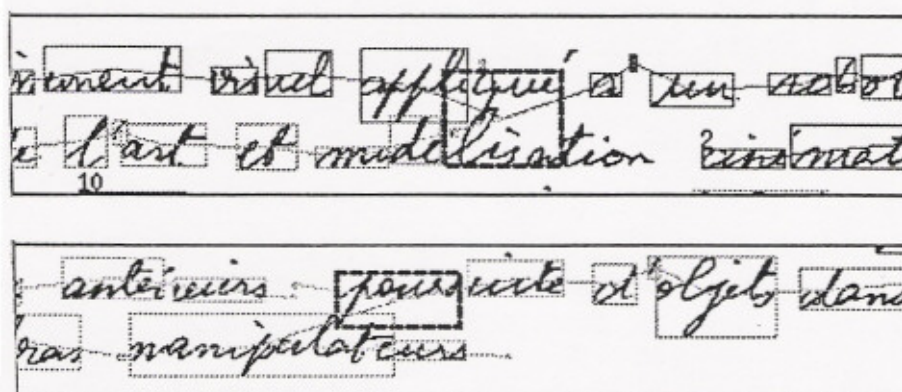 visuel appliqué à un robot
l'art et modélisation cinémat
10
antérieurs poursuite d'objets dans
bras manipulateurs